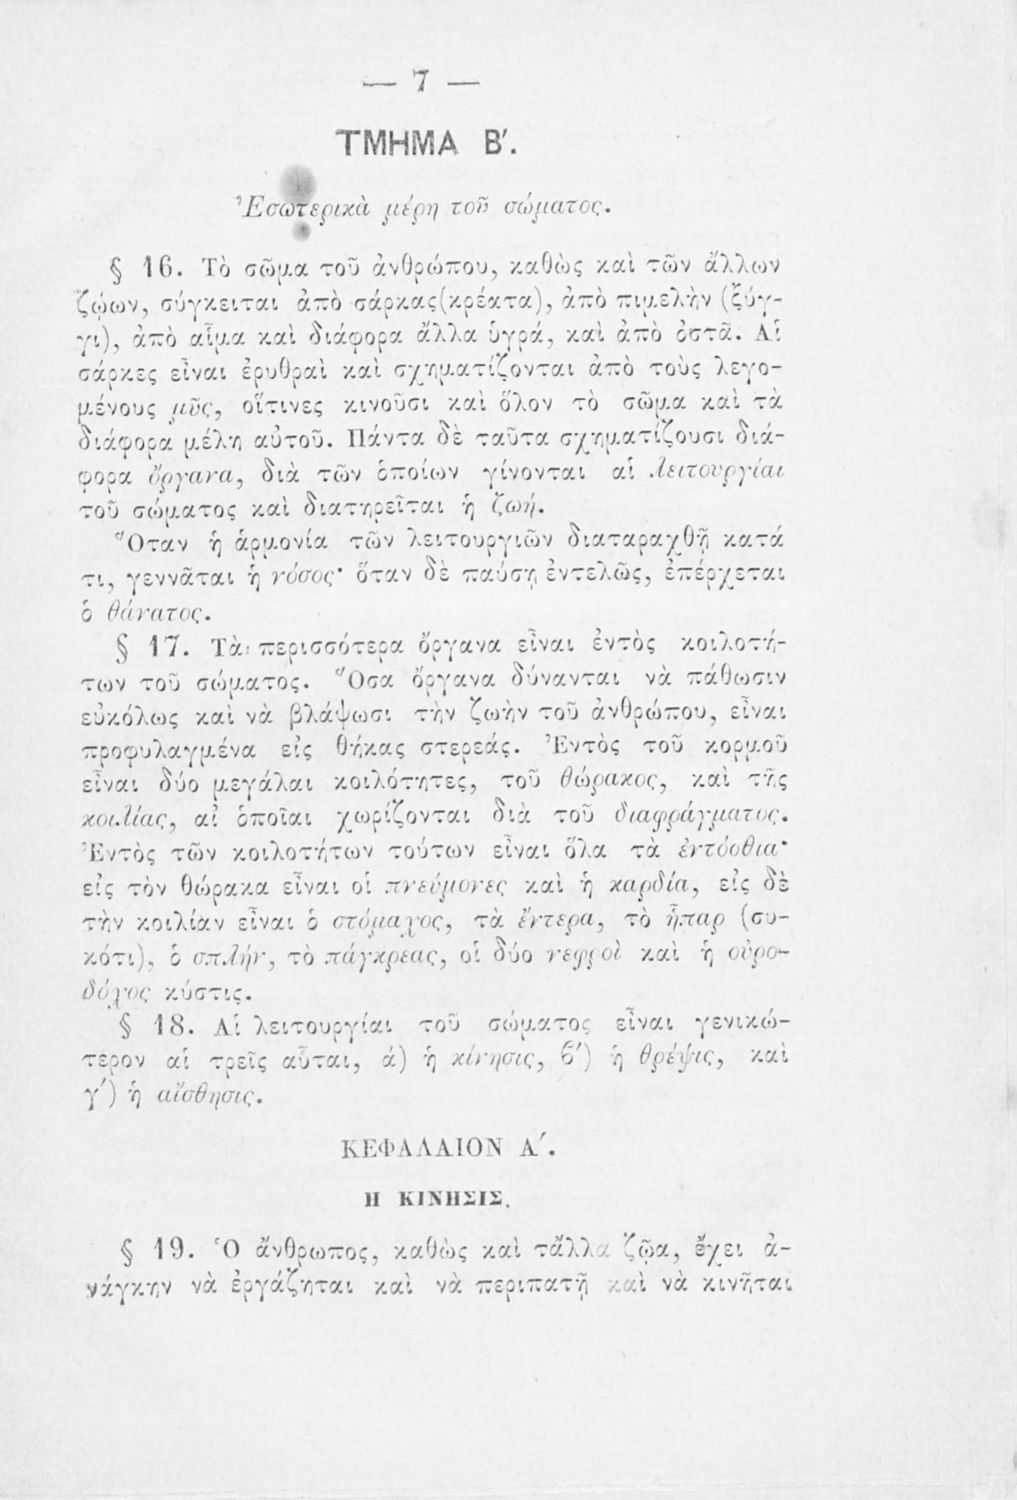 — 7 —
ΤΜΗΜΑ Β'.
Ἐσωτερικὰ μέρη τοῦ σώματος.
§ 16. Τὸ σῶμα τοῦ ἀνθρώπου, καθὼς καὶ τῶν ἄλλων
ζῴων, σύγκειται ἀπὸ σάρκας(κρέατα), ἀπὸ πιμελὴν (ξύγ-
γι), ἀπὸ αἷμα καὶ διάφορα ἄλλα ὑγρά, καὶ ἀπὸ ὀστᾶ. Αἱ
σάρκες εἶναι ἐρυθραὶ καὶ σχηματίζονται ἀπὸ τοὺς λεγο-
μένους μῦς, οἵτινες κινοῦσι καὶ ὅλον τὸ σῶμα καὶ τὰ
διάφορα μέλη αὐτοῦ. Πάντα δὲ ταῦτα σχηματίζουσι διά-
φορα ὄργανα, διὰ τῶν ὁποίων γίνονται αἱ λειτουργίαι
τοῦ σώματος καὶ διατηρεῖται ἡ ζωή.
Ὅταν ἡ ἁρμονία τῶν λειτουργιῶν διαταραχθῇ κατά
τι, γεννᾶται ἡ νόσος· ὅταν δὲ παύσῃ ἐντελῶς, ἐπέρχεται
ὁ θάνατος.
§ 17. Τὰ περισσότερα ὄργανα εἶναι ἐντὸς κοιλοτή-
των τοῦ σώματος. Ὅσα ὄργανα δύνανται νὰ πάθωσιν
εὐκόλως καὶ νὰ βλάψωσι τὴν ζωὴν τοῦ ἀνθρώπου, εἶναι
προφυλαγμένα εἰς θήκας στερεάς. Ἐντὸς τοῦ κορμοῦ
εἶναι δύο μεγάλαι κοιλότητες, τοῦ θώρακος, καὶ τῆς
κοιλίας, αἱ ὁποῖαι χωρίζονται διὰ τοῦ διαφράγματος.
Ἐντὸς τῶν κοιλοτήτων τούτων εἶναι ὅλα τὰ ἐντόσθια·
εἰς τὸν θώρακα εἶναι οἱ πνεύμονες καὶ ἡ καρδία, εἰς δὲ
τὴν κοιλίαν εἶναι ὁ στόμαχος, τὰ ἔντερα, τὸ ἧπαρ (συ-
κότι), ὁ σπλήν, τὸ πάγκρεας, οἱ δύο νεφροὶ καὶ ἡ οὐρο-
δόχος κύστις.
§ 18. Αἱ λειτουργίαι τοῦ σώματος εἶναι γενικώ-
τερον αἱ τρεῖς αὗται, ά) ἡ κίνησις, β') ἡ θρέψις, καὶ
γ') ἡ αἴσθησις.
ΚΕΦΑΛΑΙΟΝ Α'.
Η ΚΙΝΗΣΙΣ.
§ 19. Ὁ ἄνθρωπος, καθὼς καὶ τἄλλα ζῷα, ἔχει ἀ-
νάγκην νὰ ἐργάζηται καὶ νὰ περιπατῇ καὶ νὰ κινῆται